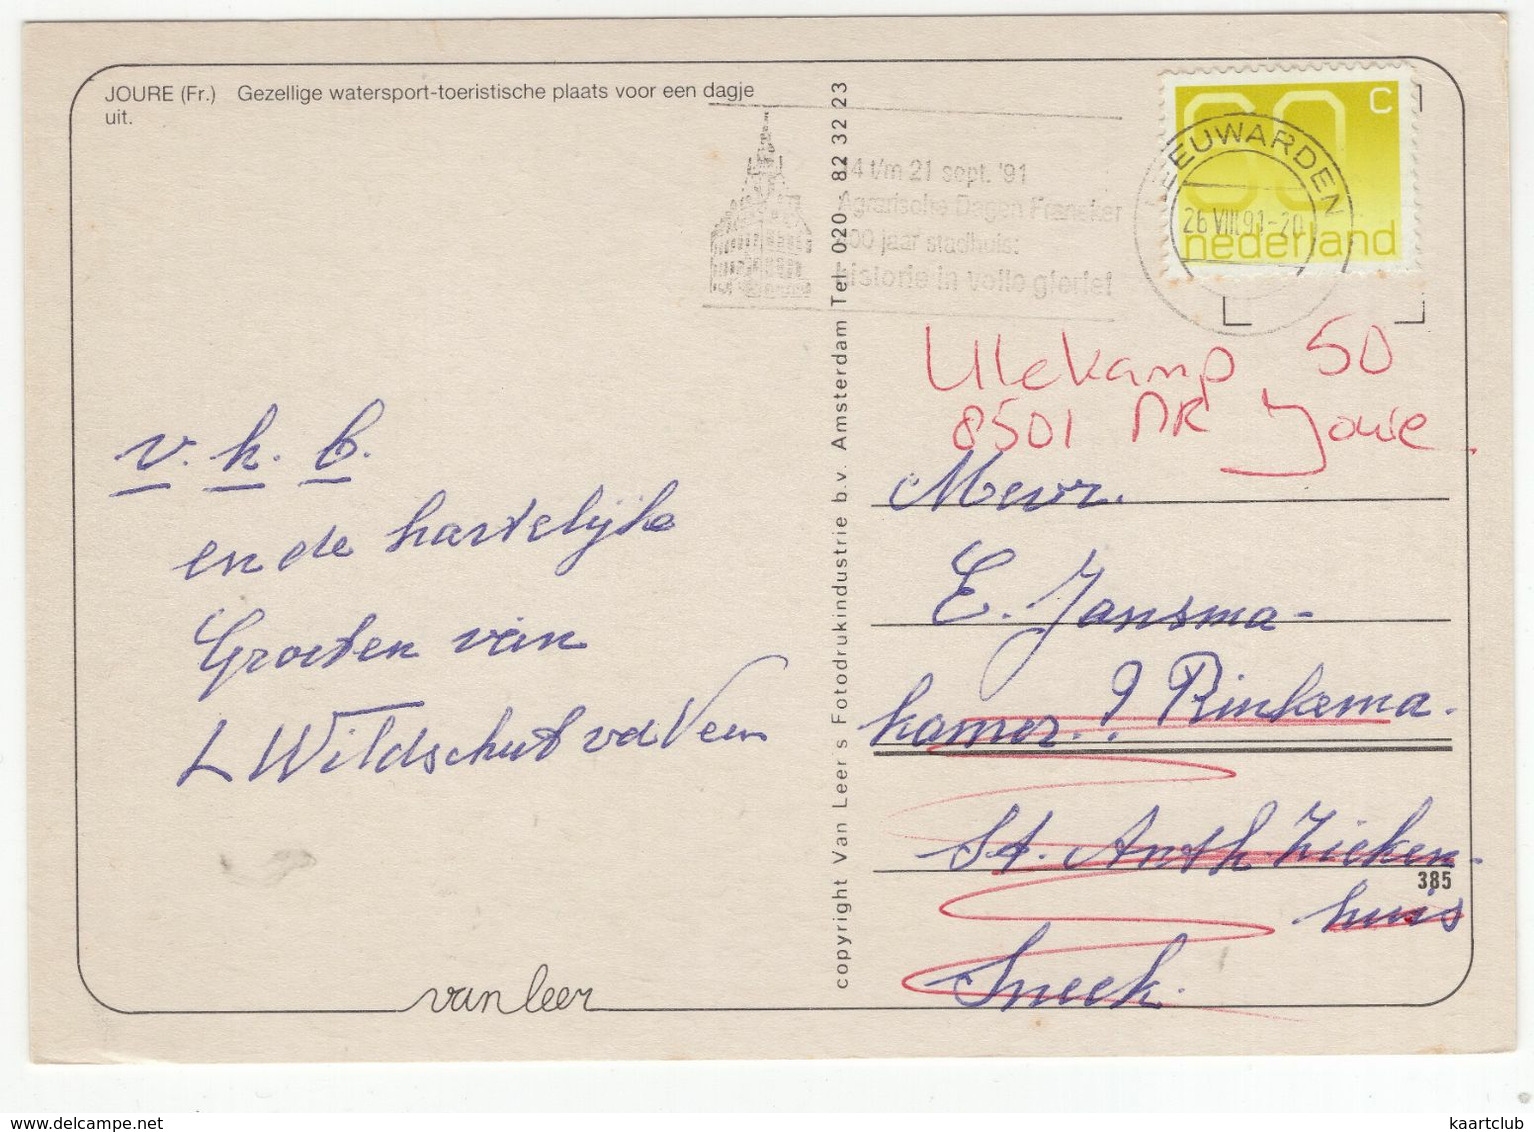 JOURE (Fr.) Gezellige watersport-toeristische plaats voor een dagje
uit.
14 t/m 21 sept. '91
Agrarische Dagen Franeker
400 jaar stadhuis:
historie in volle glorie!
60 C
nederland
LEEUWARDEN
26 VIII.91-20
v. h. b.
en de hartelijke
Groeten van
L Wildschut vd Veen
van leer
copyright Van Leer s Fotodrukindustrie b.v. Amsterdam Tel. 020 - 82 32 23
Ulekamp 50
8501 Joure.
Mevr.
E. Jansma-
Rinkema.
kamer.?
St. Anth Zieken-
385
huis
Sneek.
www.delcampe.net
kaartclub